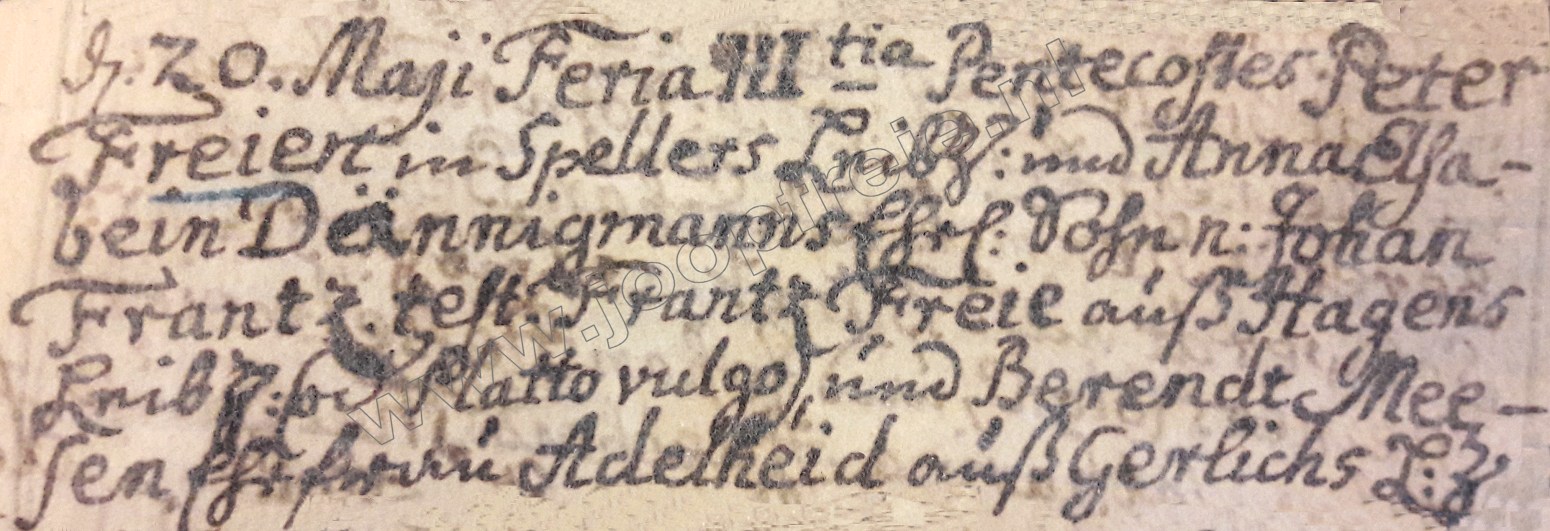 d. 20. Maji Feria III tia Pentecostes Peter
Freiert in Spellers Leibz: und Anna Elsa-
bein Dännigmanns Ehel: Sohn n: Johan
Frantz. test. Frantz Freie auß Hagens
Leibz: Platto vulgo) und Berendt Mee-
sen Ehefrau Adelheid auß Gerlichs L:z
www.joopfreie.nl